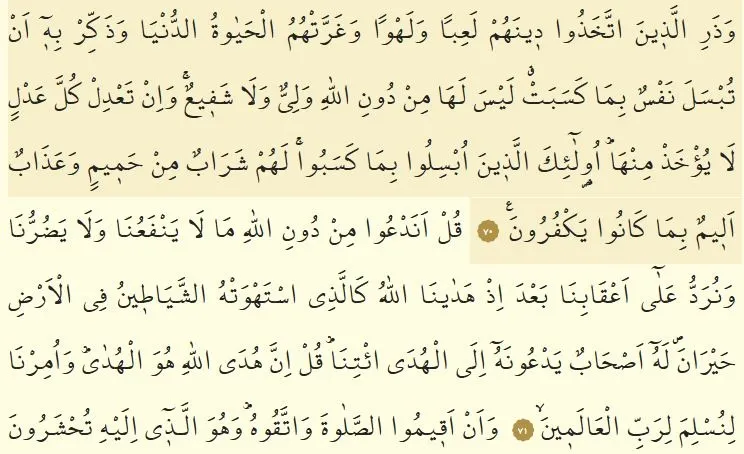 وَذَرِ الَّذ۪ينَ اتَّخَذُوا د۪ينَهُمْ لَعِبًا وَلَهْوًا وَغَرَّتْهُمُ الْحَيٰوةُ الدُّنْيَا وَذَكِّرْ بِه۪ٓ اَنْ
تُبْسَلَ نَفْسٌ بِمَا كَسَبَتْۗ لَيْسَ لَهَا مِنْ دُونِ اللّٰهِ وَلِيٌّ وَلَا شَف۪يعٌۚ وَاِنْ تَعْدِلْ كُلَّ عَدْلٍ
لَا يُؤْخَذْ مِنْهَاۜ اُو۬لٰٓئِكَ الَّذ۪ينَ اُبْسِلُوا بِمَا كَسَبُواۚ لَهُمْ شَرَابٌ مِنْ حَم۪يمٍ وَعَذَابٌ
اَل۪يمٌ بِمَا كَانُوا يَكْفُرُونَ۟ ﴿٧٠﴾ قُلْ اَنَدْعُوا مِنْ دُونِ اللّٰهِ مَا لَا يَنْفَعُنَا وَلَا يَضُرُّنَا
وَنُرَدُّ عَلٰٓى اَعْقَابِنَا بَعْدَ اِذْ هَدٰينَا اللّٰهُ كَالَّذِي اسْتَهْوَتْهُ الشَّيَاط۪ينُ فِي الْاَرْضِ
حَيْرَانَۖ لَهُٓ اَصْحَابٌ يَدْعُونَهُٓ اِلَى الْهُدَى ائْتِنَاۜ قُلْ اِنَّ هُدَى اللّٰهِ هُوَ الْهُدٰىۜ وَاُمِرْنَا
لِنُسْلِمَ لِرَبِّ الْعَالَم۪ينَۙ ﴿٧١﴾ وَاَنْ اَق۪يمُوا الصَّلٰوةَ وَاتَّقُوهُۜ وَهُوَ الَّذ۪ٓي اِلَيْهِ تُحْشَرُونَ